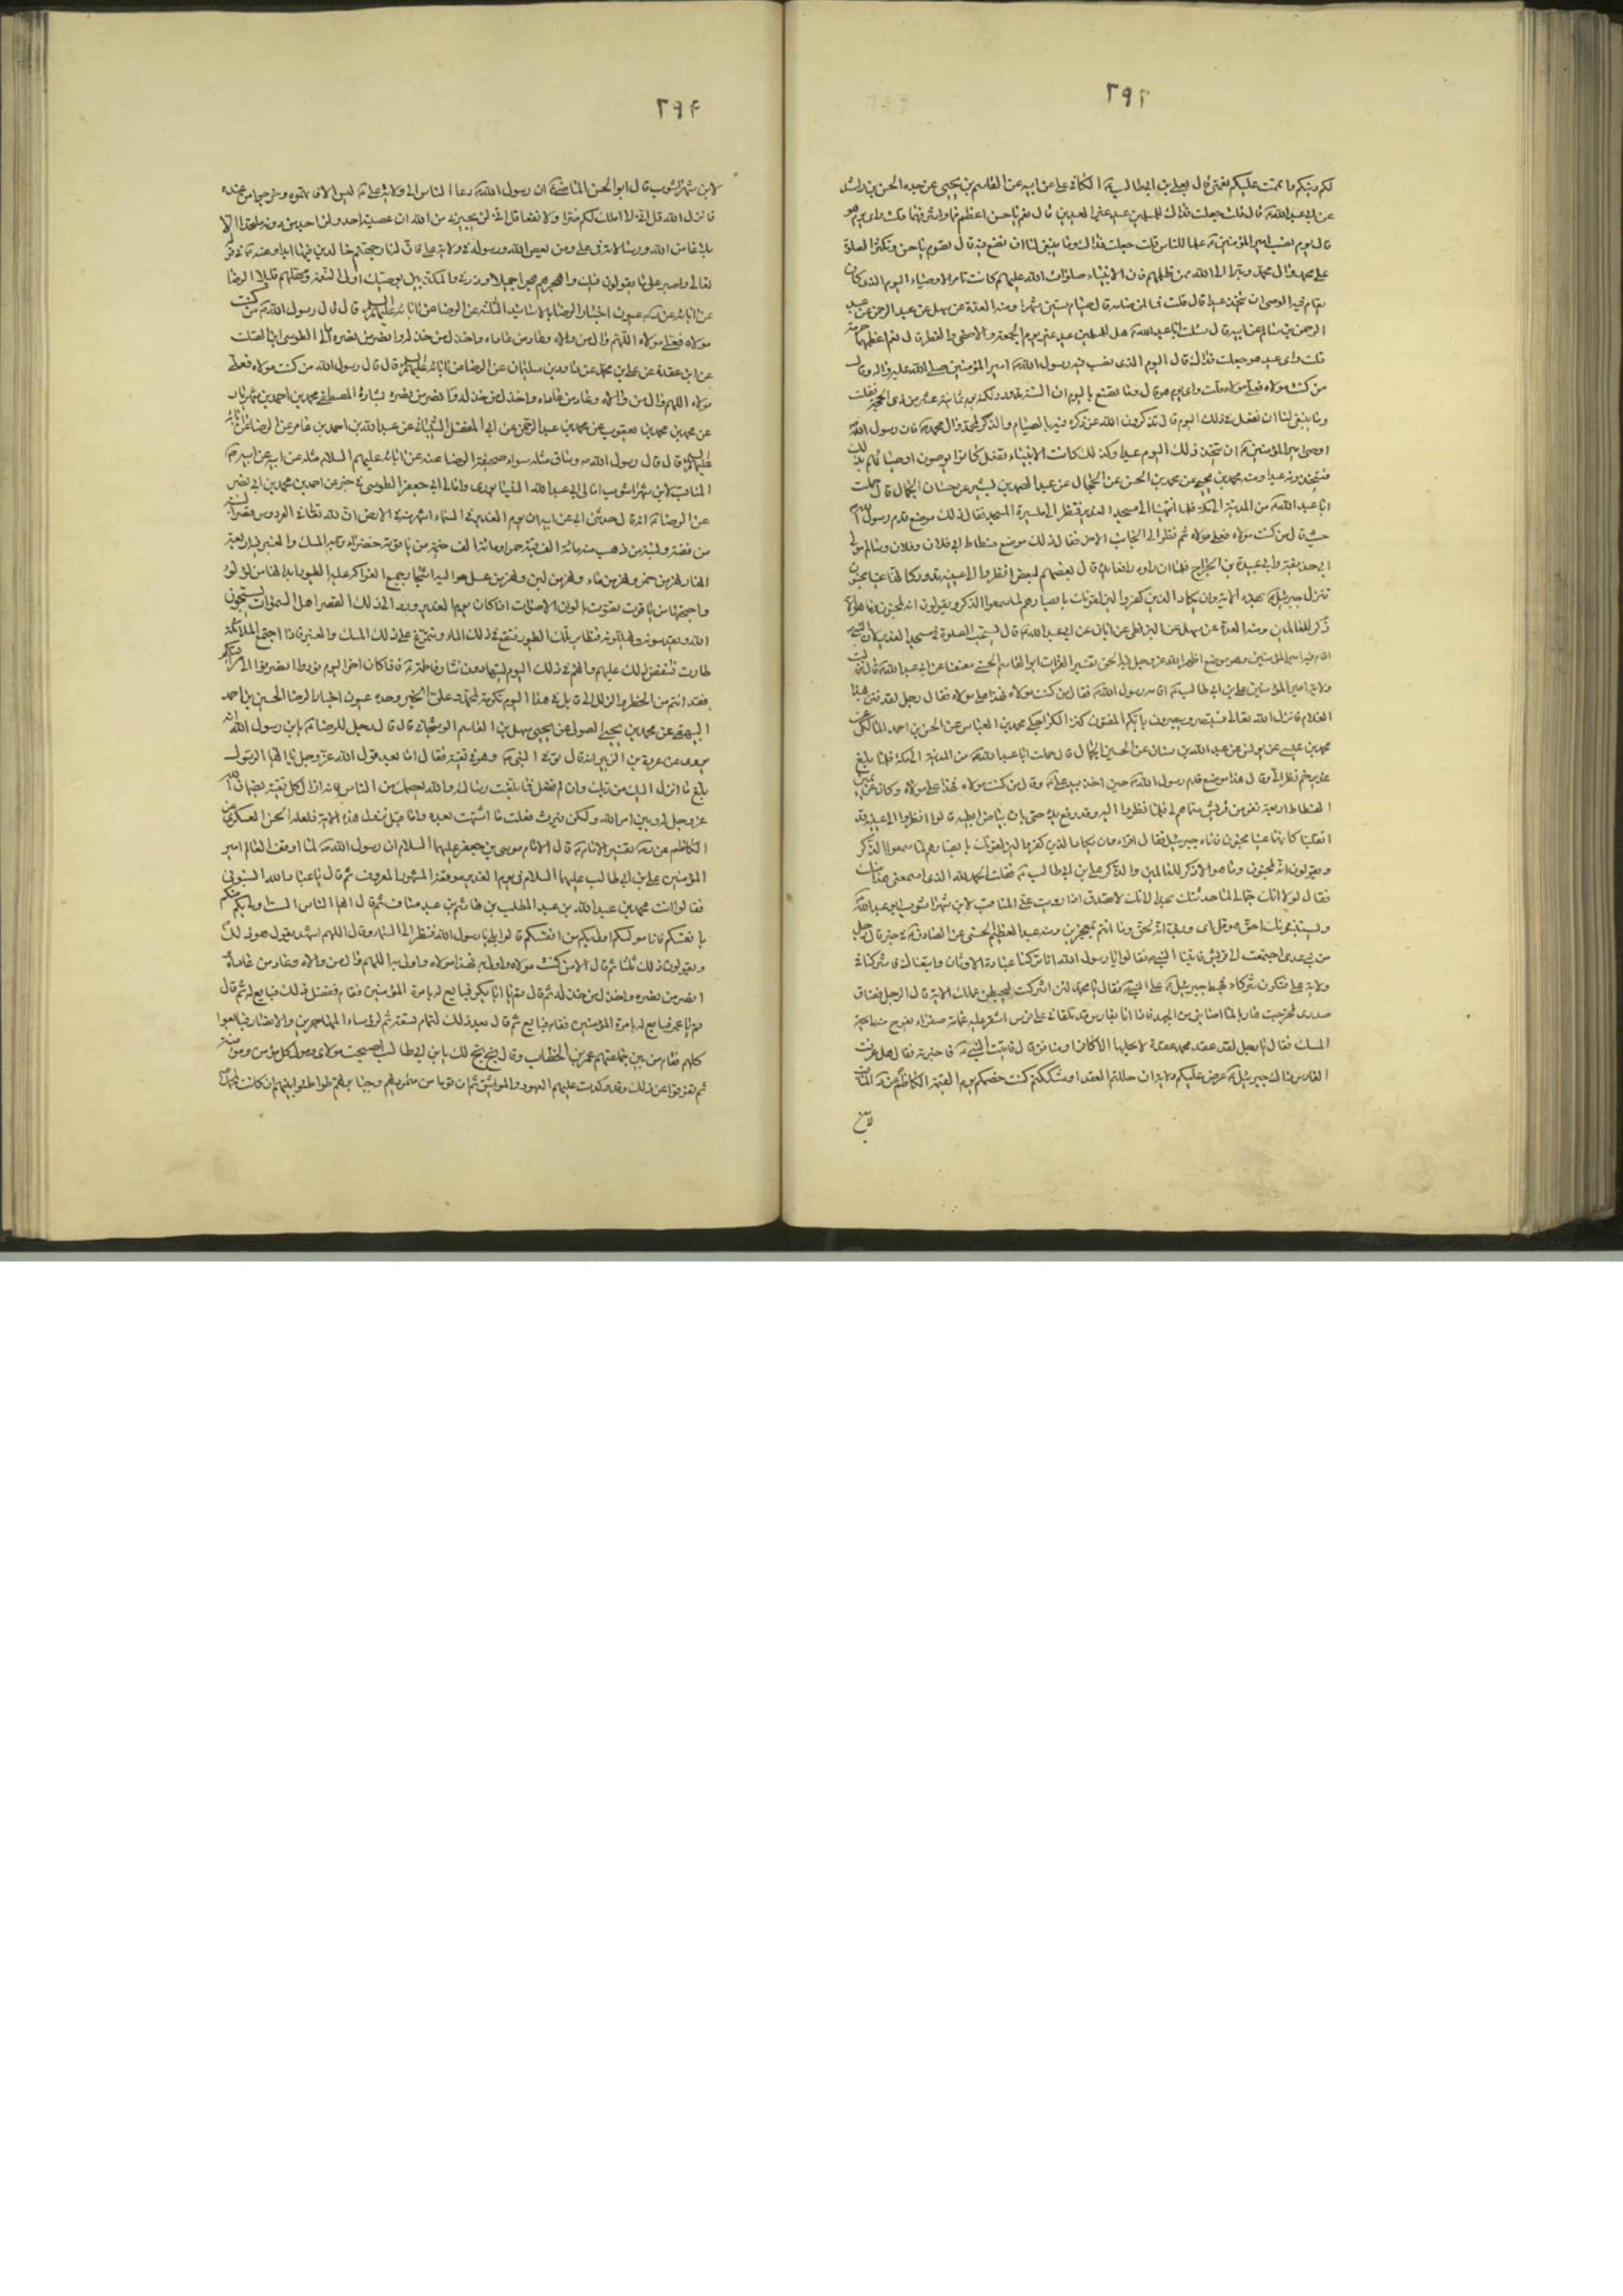 ٢٩٣
لكم دينكم ما تمت عليكم نعمتى قال بعلى بن ابيطالب الكافى على عن ابيه عن القاسم بن يحيى عن جده الحسن بن راشد
عن ابى عبد الله قال قلت جعلت فداك للمسلمين عيد غير العيدين قال نعم يا حسن اعظمهما واشرفهما قلت واى يوم هو
قال يوم نصب امير المؤمنين علما للناس قلت جعلت فداك وما ينبغى لنا ان نصنع فيه قال تصوم يا حسن وتكثر الصلوة
على محمد وال محمد وتبرا الى الله ممن ظلمهم فان الانبياء صلوات الله عليهم كانت تامر الاوصياء اليوم الذى كان
يقام فيه الوصى ان يتخذ عيدا قال قلت فما لمن صامه قال صيام ستين شهرا ومنه العدة عن سهل عن عبد الرحمن عن
الرحمن بن سالم عن ابيه قال سئلت ابا عبد الله هل للمسلمين عيد غير يوم الجمعة والاضحى والفطر قال نعم اعظمها حرمة
قلت واى عيد هو جعلت فداك قال اليوم الذى نصب فيه رسول الله امير المؤمنين صلى الله عليه واله وقال
من كنت مولاه فعلى مولاه قلت واى يوم هو قال وما تصنع باليوم ان السنة تدور ولكنه يوم ثمانية عشر من ذى الحجة فقلت
وما ينبغى لنا ان نفعل فى ذلك اليوم قال تذكرون الله عز ذكره فيه بالصيام والذكر لمحمد وال محمد فان رسول الله
اوصى امير المؤمنين ان يتخذ ذلك اليوم عيدا وكذلك كانت الانبياء تفعل كانوا يوصون اوصيائهم بذلك
فيتخذونه عيدا ومنه محمد بن يحيى عن محمد بن الحسن عن الحجال عن عبد الصمد بن بشير عن حسان الجمال قال حملت
ابا عبد الله من المدينة الى مكة فلما انتهينا الى مسجد الغدير فنظر الى ميسرة المسجد فقال ذلك موضع قدم رسول الله
حيث قال من كنت مولاه فعلى مولاه ثم نظر الى الجانب الاخر فقال ذلك موضع فسطاط ابى فلان وفلان وسالم مولى
ابى حذيفة وابى عبيدة بن الجراح فلما ان راوه رافعا يده قال بعضهم لبعض انظروا الى عينيه تدور كانهما عينا مجنون
فنزل جبرئيل بهذه الاية وان يكاد الذين كفروا ليزلقونك بابصارهم لما سمعوا الذكر ويقولون انه لمجنون وما هو الا
ذكر للعالمين ومنه العدة عن سهل عن البزنطى عن ابان عن ابى عبد الله قال يستحب الصلوة فى مسجد الغدير لان النبى
اقام فيه امير المؤمنين وهو موضع اظهر الله عز وجل فيه الحق تفسير الفرات ابو القاسم الحسنى معنعنا عن ابى عبد الله قال
ولاية امير المؤمنين على بن ابى طالب اقامه رسول الله فقال من كنت مولاه فهذا على مولاه فقال رجل لقد فتن بهذا
الغلام فانزل الله تعالى فستبصر ويبصرون بايكم المفتون كنز الكراجكى محمد بن العباس عن الحسن بن احمد المالكى عن
محمد بن عيسى عن يونس عن عبد الله بن سنان عن الحسين الجمال قال حملت ابا عبد الله من المدينة الى مكة فلما بلغ
غدير خم نظر الى وقال هذا موضع قدم رسول الله حين اخذ بيد على وقال من كنت مولاه فهذا على مولاه وكان عن يمين
الفسطاط اربعة نفر من قريش سماهم لى فلما نظروا اليه وقد رفع يده حتى بان بياض ابطيه قالوا انظروا الى عينيه قد
انقلبتا كانهما عينا مجنون فاتاه جبرئيل فقال اقراء وان يكاد الذين كفروا ليزلقونك بابصارهم لما سمعوا الذكر
ويقولون انه لمجنون وما هو الا ذكر للعالمين والذكر على بن ابى طالب فقلت الحمد لله الذى اسمعنى هذا منك
فقال لولا انك جمالى لما حدثتك بهذا لانك لا تصدق اذا رويت عنى المناقب لابن شهراشوب ابو عبد الله
ويستنبئونك احق هو قل اى وربى انه لحق وما انتم بمعجزين ومنه عبد العظيم الحسنى عن الصادق فى خبر قال رجل
من بنى عدى اجتمعت الى قريش فاتينا النبى فقالوا يا رسول الله انا تركنا عبادة الاوثان واتبعناك فاشركنا فى
ولاية على فنكون شركاء فهبط جبرئيل على النبى فقال يا محمد لئن اشركت ليحبطن عملك الاية قال الرجل فضاق
صدرى فخرجت هاربا لما اصابنى من الجهد فاذا انا بفارس قد تلقانى على فرس اشقر عليه عمامة صفراء يفوح منه رائحة
المسك فقال يا رجل لقد عقد محمد عقدة لا يحلها الا كافر او منافق قال فاتيت النبى فاخبرته فقال هل عرفت
الفارس ذاك جبرئيل عرض عليكم ولاية ان حللتم العقد او شككتم كنت خصمكم يوم القيمة الكاظم عن
٢٩٤
لابن شهراشوب قال ابو الحسن الماضى ان رسول الله دعا الناس الى ولاية على ليس الا فاتهموه وخرجوا من عنده
فانزل الله قل انى لا املك لكم ضرا ولا رشدا قل انى لن يجيرنى من الله ان عصيته احد ولن اجد من دونه ملتحدا الا
بلاغا من الله ورسالاته فى على ومن يعص الله ورسوله فى ولاية على فان له نار جهنم خالدين فيها ابدا وعنه فى قوله
تعالى واصبر على ما يقولون فيك واهجرهم هجرا جميلا وذرنى والمكذبين بوصيك اولى النعمة ومهلهم قليلا الرضا
عن ابائه عيون اخبار الرضا بالاسانيد الثلثة عن الرضا عن ابائه عليهم السلم قال قال رسول الله من كنت
مولاه فعلى مولاه اللهم وال من والاه وعاد من عاداه واخذل من خذله وانصر من نصره امالى الطوسى ابن الصلت
عن ابن عقدة عن على بن محمد عن داود بن سليمان عن الرضا عن ابائه عليهم السلم قال قال رسول الله من كنت مولاه فعلى
مولاه اللهم وال من والاه وعاد من عاداه واخذل من خذله وانصر من نصره بشارة المصطفى محمد بن احمد بن شهريار
عن محمد بن محمد بن يعقوب عن محمد بن عبد الرحمن عن ابى المفضل الشيبانى عن عبد الله بن احمد بن عامر عن الرضا عن ابائه
عليهم السلم قال قال رسول الله وساق مثله سواء صحيفة الرضا عنه عن ابائه عليهم السلام مثله عن ابيه عن ابيه
المناقب لابن شهراشوب امالى ابى عبد الله النيسابورى وامالى ابى جعفر الطوسى فى خبر عن احمد بن محمد بن ابى نصر
عن الرضا انه قال حدثنى ابى عن ابيه ان يوم الغدير فى السماء اشهر منه فى الارض ان لله تعالى فى الفردوس قصرا لبنة
من فضة ولبنة من ذهب فيه مائة الف قبة حمراء ومائة الف خيمة من ياقوتة خضراء ترابه المسك والعنبر فيه اربعة
انهار نهر من خمر ونهر من ماء ونهر من لبن ونهر من عسل حواليه اشجار جميع الفواكه عليه الطيور ابدانها من لؤلؤ
واجنحتها من ياقوت تصوت بالوان الاصوات اذا كان يوم الغدير ورد الى ذلك القصر اهل السموات يسبحون
الله ويقدسونه ويهللونه فتطاير تلك الطيور فتقع فى ذلك الماء وتتمرغ على ذلك المسك والعنبر فاذا اجتمع الملائكة
طارت فتنفض ذلك عليهم وانهم فى ذلك اليوم ليتهادون نثار فاطمة فاذا كان اخر اليوم نودوا انصرفوا الى مراتبكم
فقد امنتم من الخطر والزلل الى قابل فى هذا اليوم تكرمة لمحمد وعلى الخبر وحده عيون اخبار الرضا الحسين بن احمد
البيهقى عن محمد بن يحيى الصولى عن سهل بن القاسم النوشجانى قال قال رجل للرضا يا بن رسول الله انه
يروى عن عروة بن الزبير انه قال توفى النبى وهو فى تقية فقال اما بعد قول الله عز وجل يا ايها الرسول
بلغ ما انزل اليك من ربك وان لم تفعل فما بلغت رسالته والله يعصمك من الناس فانه ازال كل تقية بضمان الله
عز وجل له وبين امر الله ولكن قريش فعلت ما اشتهت بعده واما قبل نزول هذه الاية فلعله الحسن العسكرى عن
الكاظم تفسير الامام قال الامام موسى بن جعفر عليهما السلام ان رسول الله لما اوقف العالم امير
المؤمنين على بن ابى طالب عليهما السلام فى يوم الغدير موقفه المشهور المعروف ثم قال يا عباد الله انسبونى
فقالوا انت محمد بن عبد الله بن عبد المطلب بن هاشم بن عبد مناف ثم قال ايها الناس الست اولى بكم منكم
بانفسكم فانا مولاكم اولى بكم من انفسكم قالوا بلى يا رسول الله فنظر الى السماء وقال اللهم اشهد يقول هو ذلك
ويقولون ذلك ثلثا ثم قال الا من كنت مولاه واولى به فهذا مولاه واولى به اللهم وال من والاه وعاد من عاداه
انصر من نصره واخذل من خذله ثم قال قم يا ابا بكر فبايع له بامرة المؤمنين فقام ففعل ذلك فبايع له ثم قال
قم يا عمر فبايع له بامرة المؤمنين فقام فبايع ثم قال بعد ذلك لتمام تسعة ثم لرؤساء المهاجرين والانصار فبايعوا
كلهم فقام من بين جماعتهم عمر بن الخطاب وقال بخ بخ لك يا بن ابى طالب اصبحت مولاى ومولى كل مؤمن ومؤمنة
ثم تفرقوا عن ذلك وقد وكدت عليهم العهود والمواثيق ثم ان قوما من متمرديهم وجبابرتهم تواطئوا بينهم ان كانت لمحمد